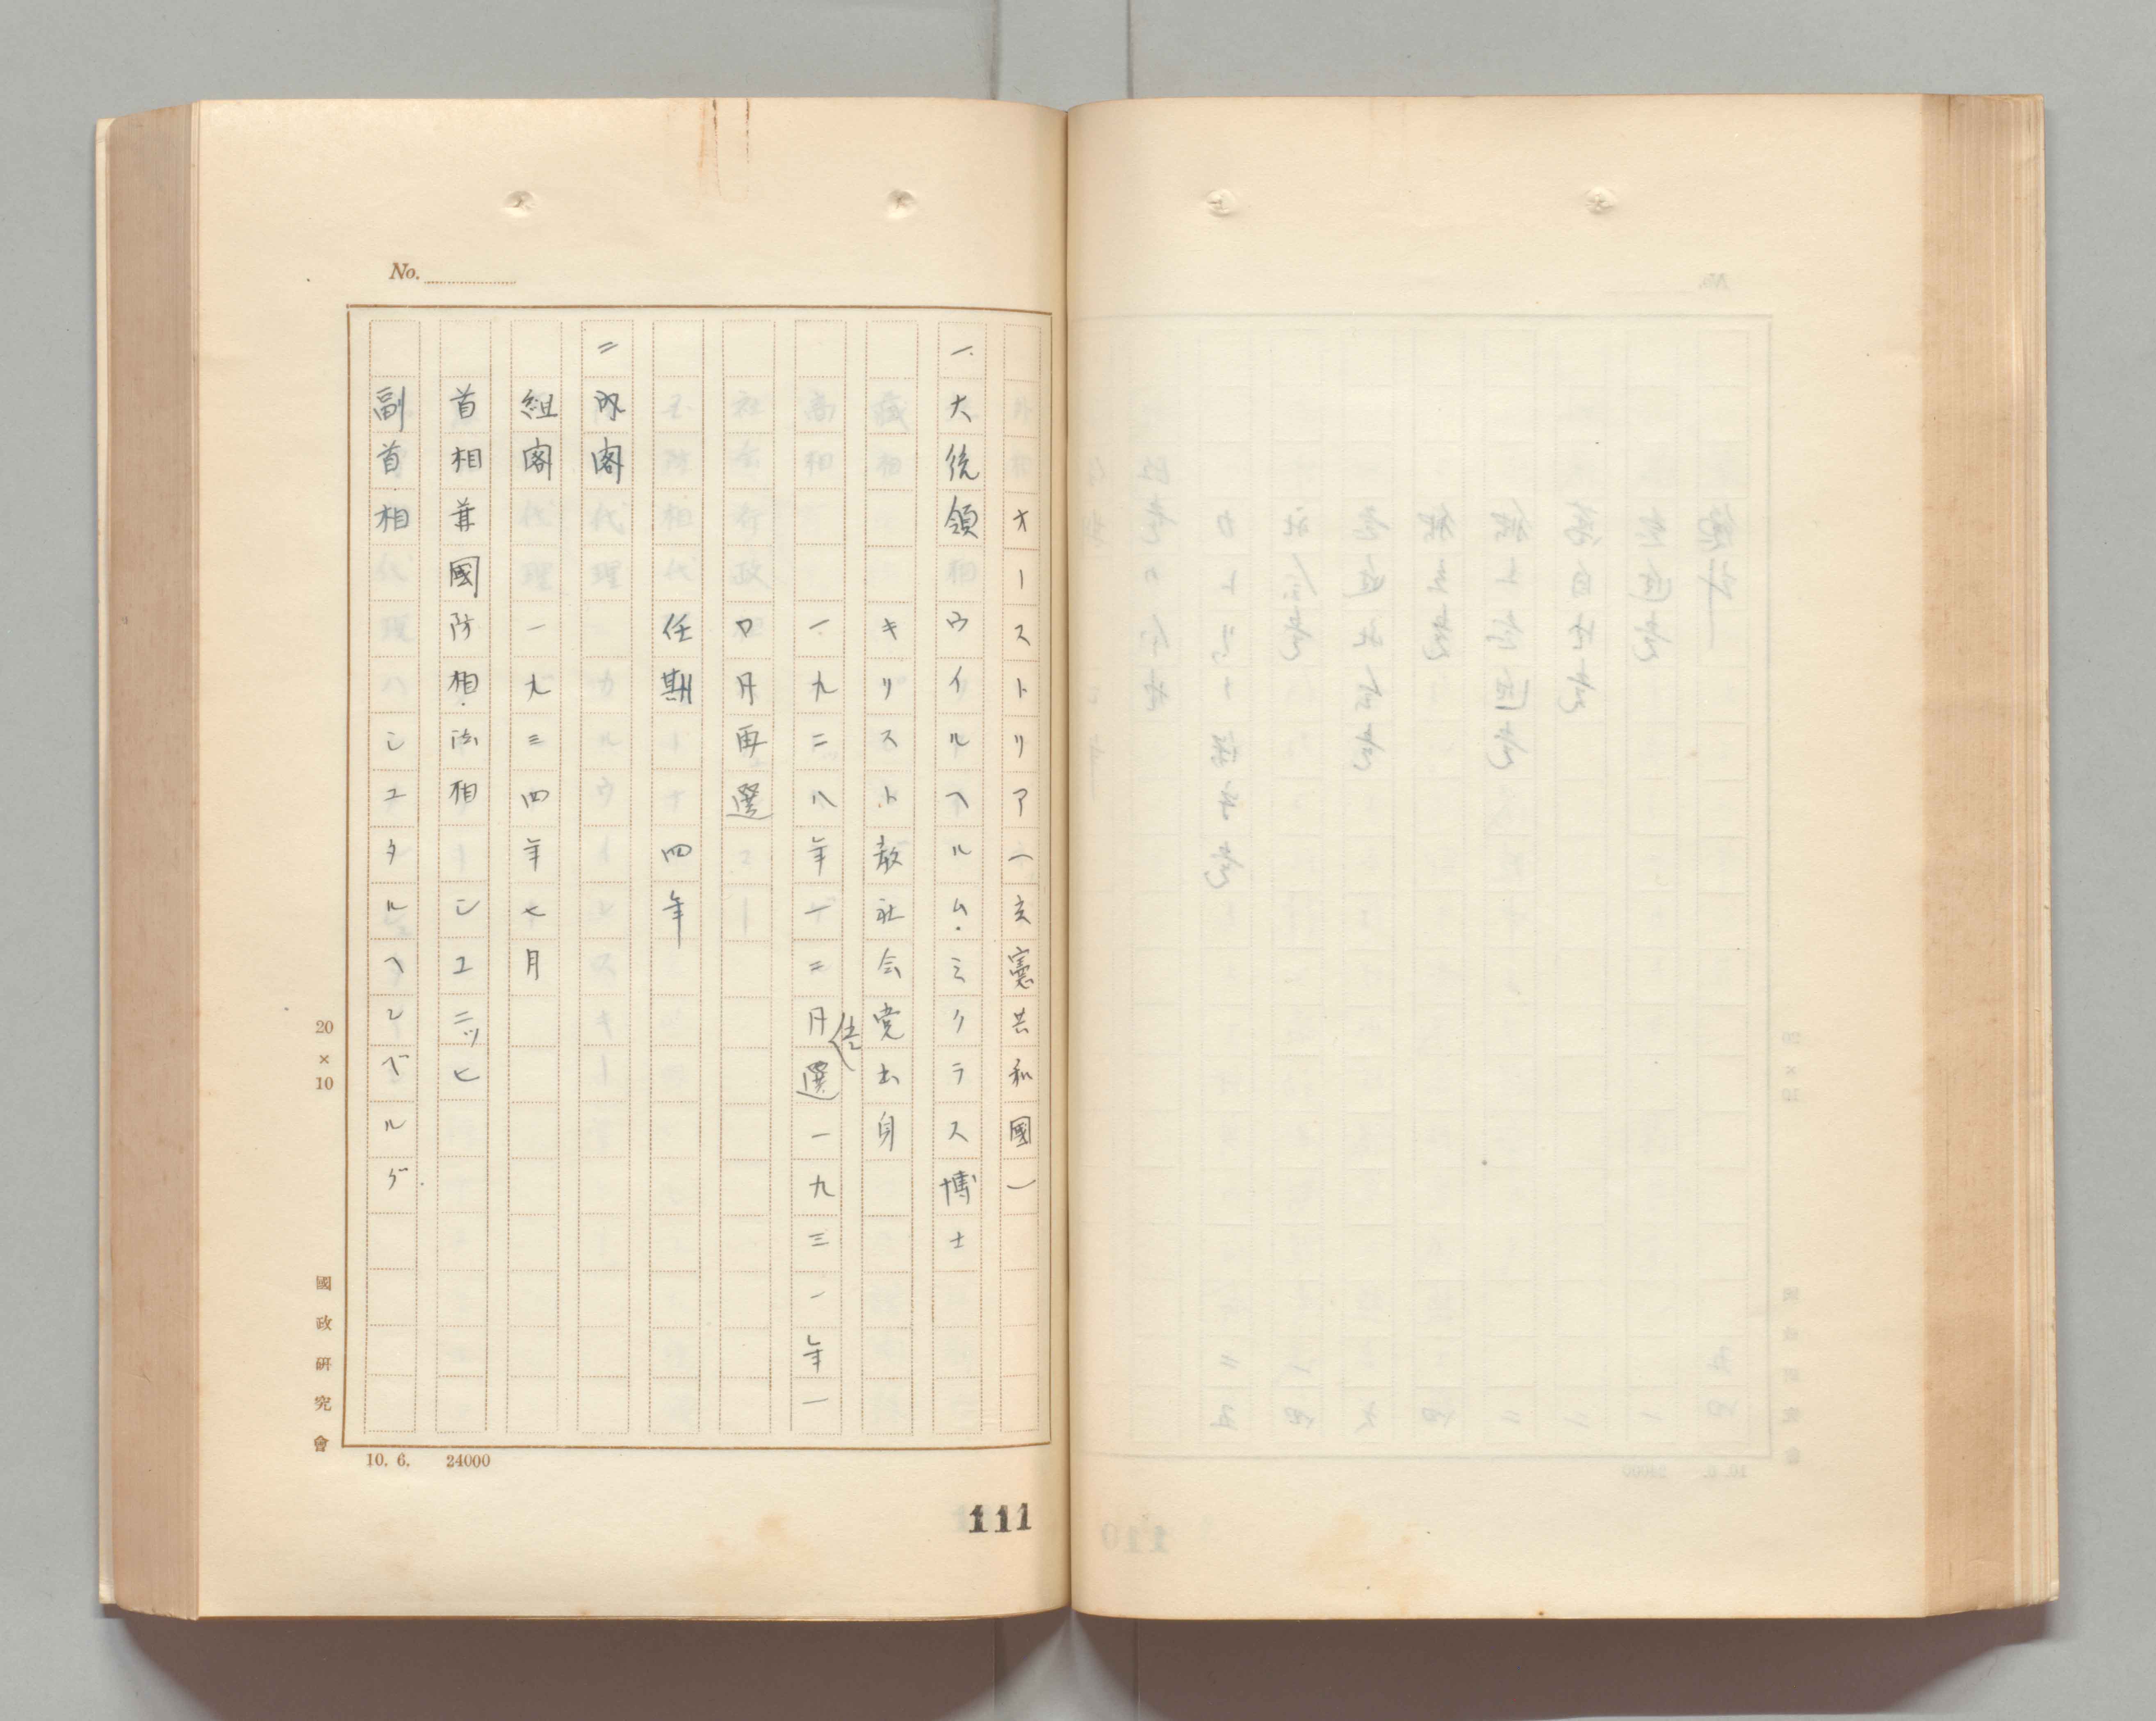 No.
オーストリア（立憲共和國）
一.大統領 ウイルヘルム.ミクラス博士
キリスト教社会党出身
一九二八年一二月選任一九三一年一
〇月再選
任期 四年
二 内閣
組閣 一九三四年七月
首相兼國防相.法相 シユニツヒ
副首相 シユタルヘンベルグ.
20×10
國政研究會
10. 6. 24000
111